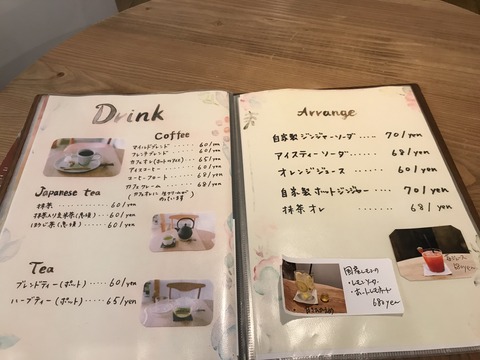 Drink
Coffee
マイルドブレンド ····· 601yen
フレンチブレンド ····· 601yen
カフェオレ(ホットorアイス) ··· 651yen
アイスコーヒー ····· 601yen
コーヒーフロート ····· 681yen
カフェクレーム ····· 681yen
Japanese tea
抹茶 ········ 601yen
抹茶入り玄米茶(急須) ·· 601yen
ほうじ茶(急須) ····· 601yen
Tea
ブレンドティー(ポット) ····· 601yen
ハーブティー(ポット) ····· 651yen
Arrange
自家製 ジンジャーソーダ ····· 701yen
アイスティーソーダ ····· 681yen
オレンジジュース ····· 601yen
自家製 ホットジンジャー ···· 701yen
抹茶 オレ ····· 681yen
国産レモンの
・レモンソーダ
・ホットレモネード
681yen
681yen